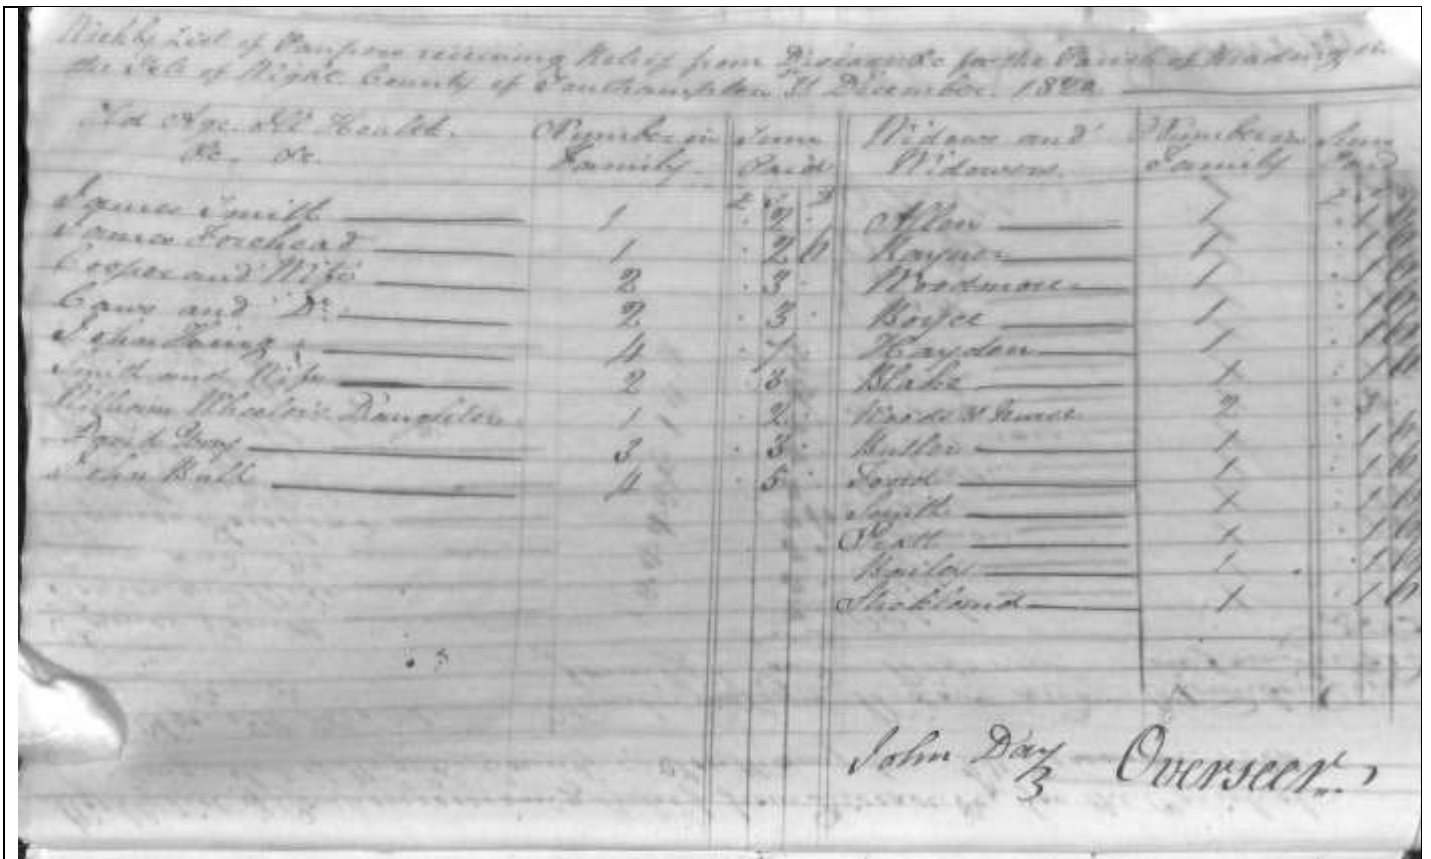 Weekly List of Paupers receiving Relief from Disease &c for the Parish of Brading in
the Isle of Wight County of Southampton 31 December 1820
Old Age Ill Health. Number in Sum Widows and Number in Sum
&c. &c. Family Paid Widowers. Family Paid
£ s d
James Smith 1 . 2 . Allen 1 . 1 6
James Forehead 1 . 2 6 Rayner 1 . 1 6
Cooper and Wife 2 . 3 . Woodmore 1 . 1 6
Caws and Do. 2 . 3 . Boyce 1 . 1 6
John King 4 . 7 . Hayden 1 . 1 6
Smith and Wife 2 . 3 . Blake 1 . 1 6
William Wheeler's Daughter 1 . 2 . Woods & 2 . 3 .
David 3 . 3 . Butler 1 . 1 6
John Bull 4 . 5 . Ford 1 . 1 6
Smith 1 . 1 6
Pratt 1 . 1 6
Bailey 1 . 1 6
Stickland 1 . 1 6
John Day Overseer
3